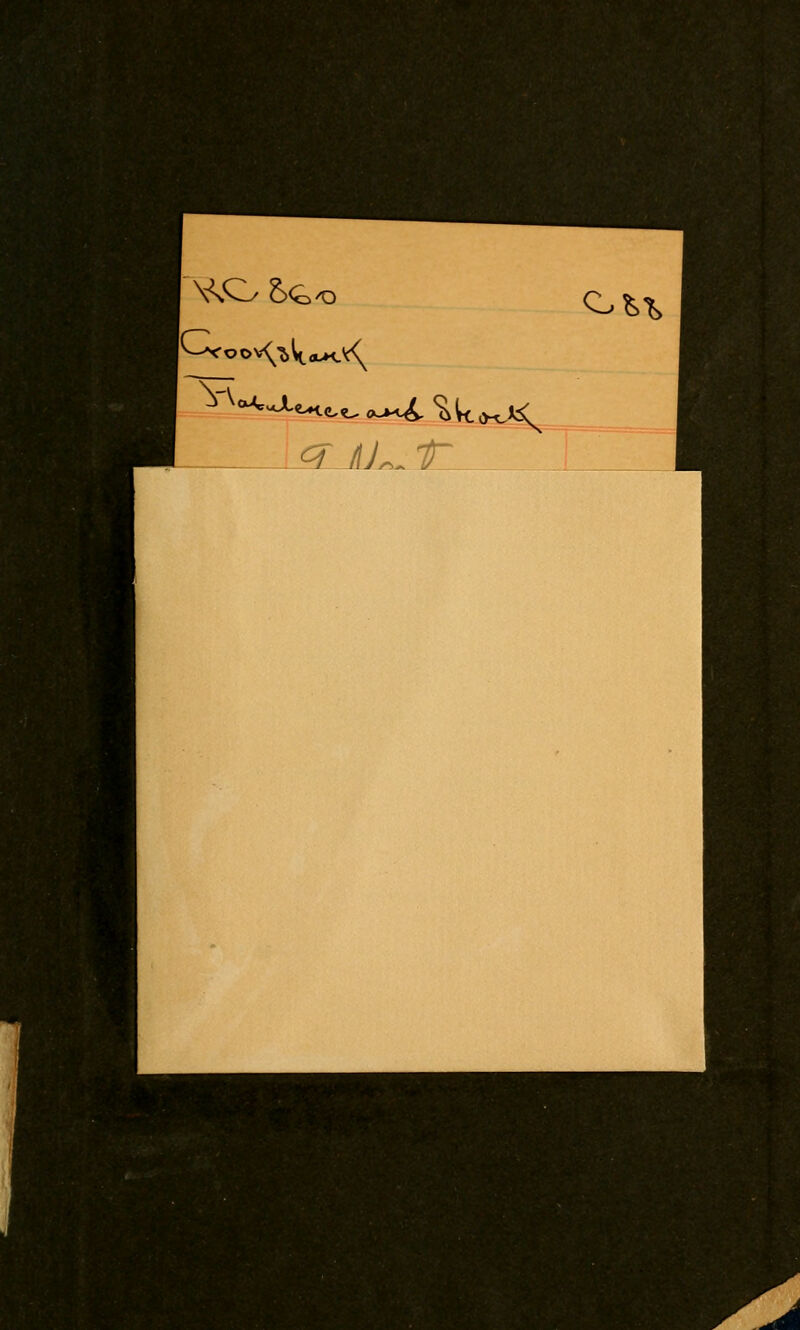 RC860 C88
Crookshank
Flatulence and Shock